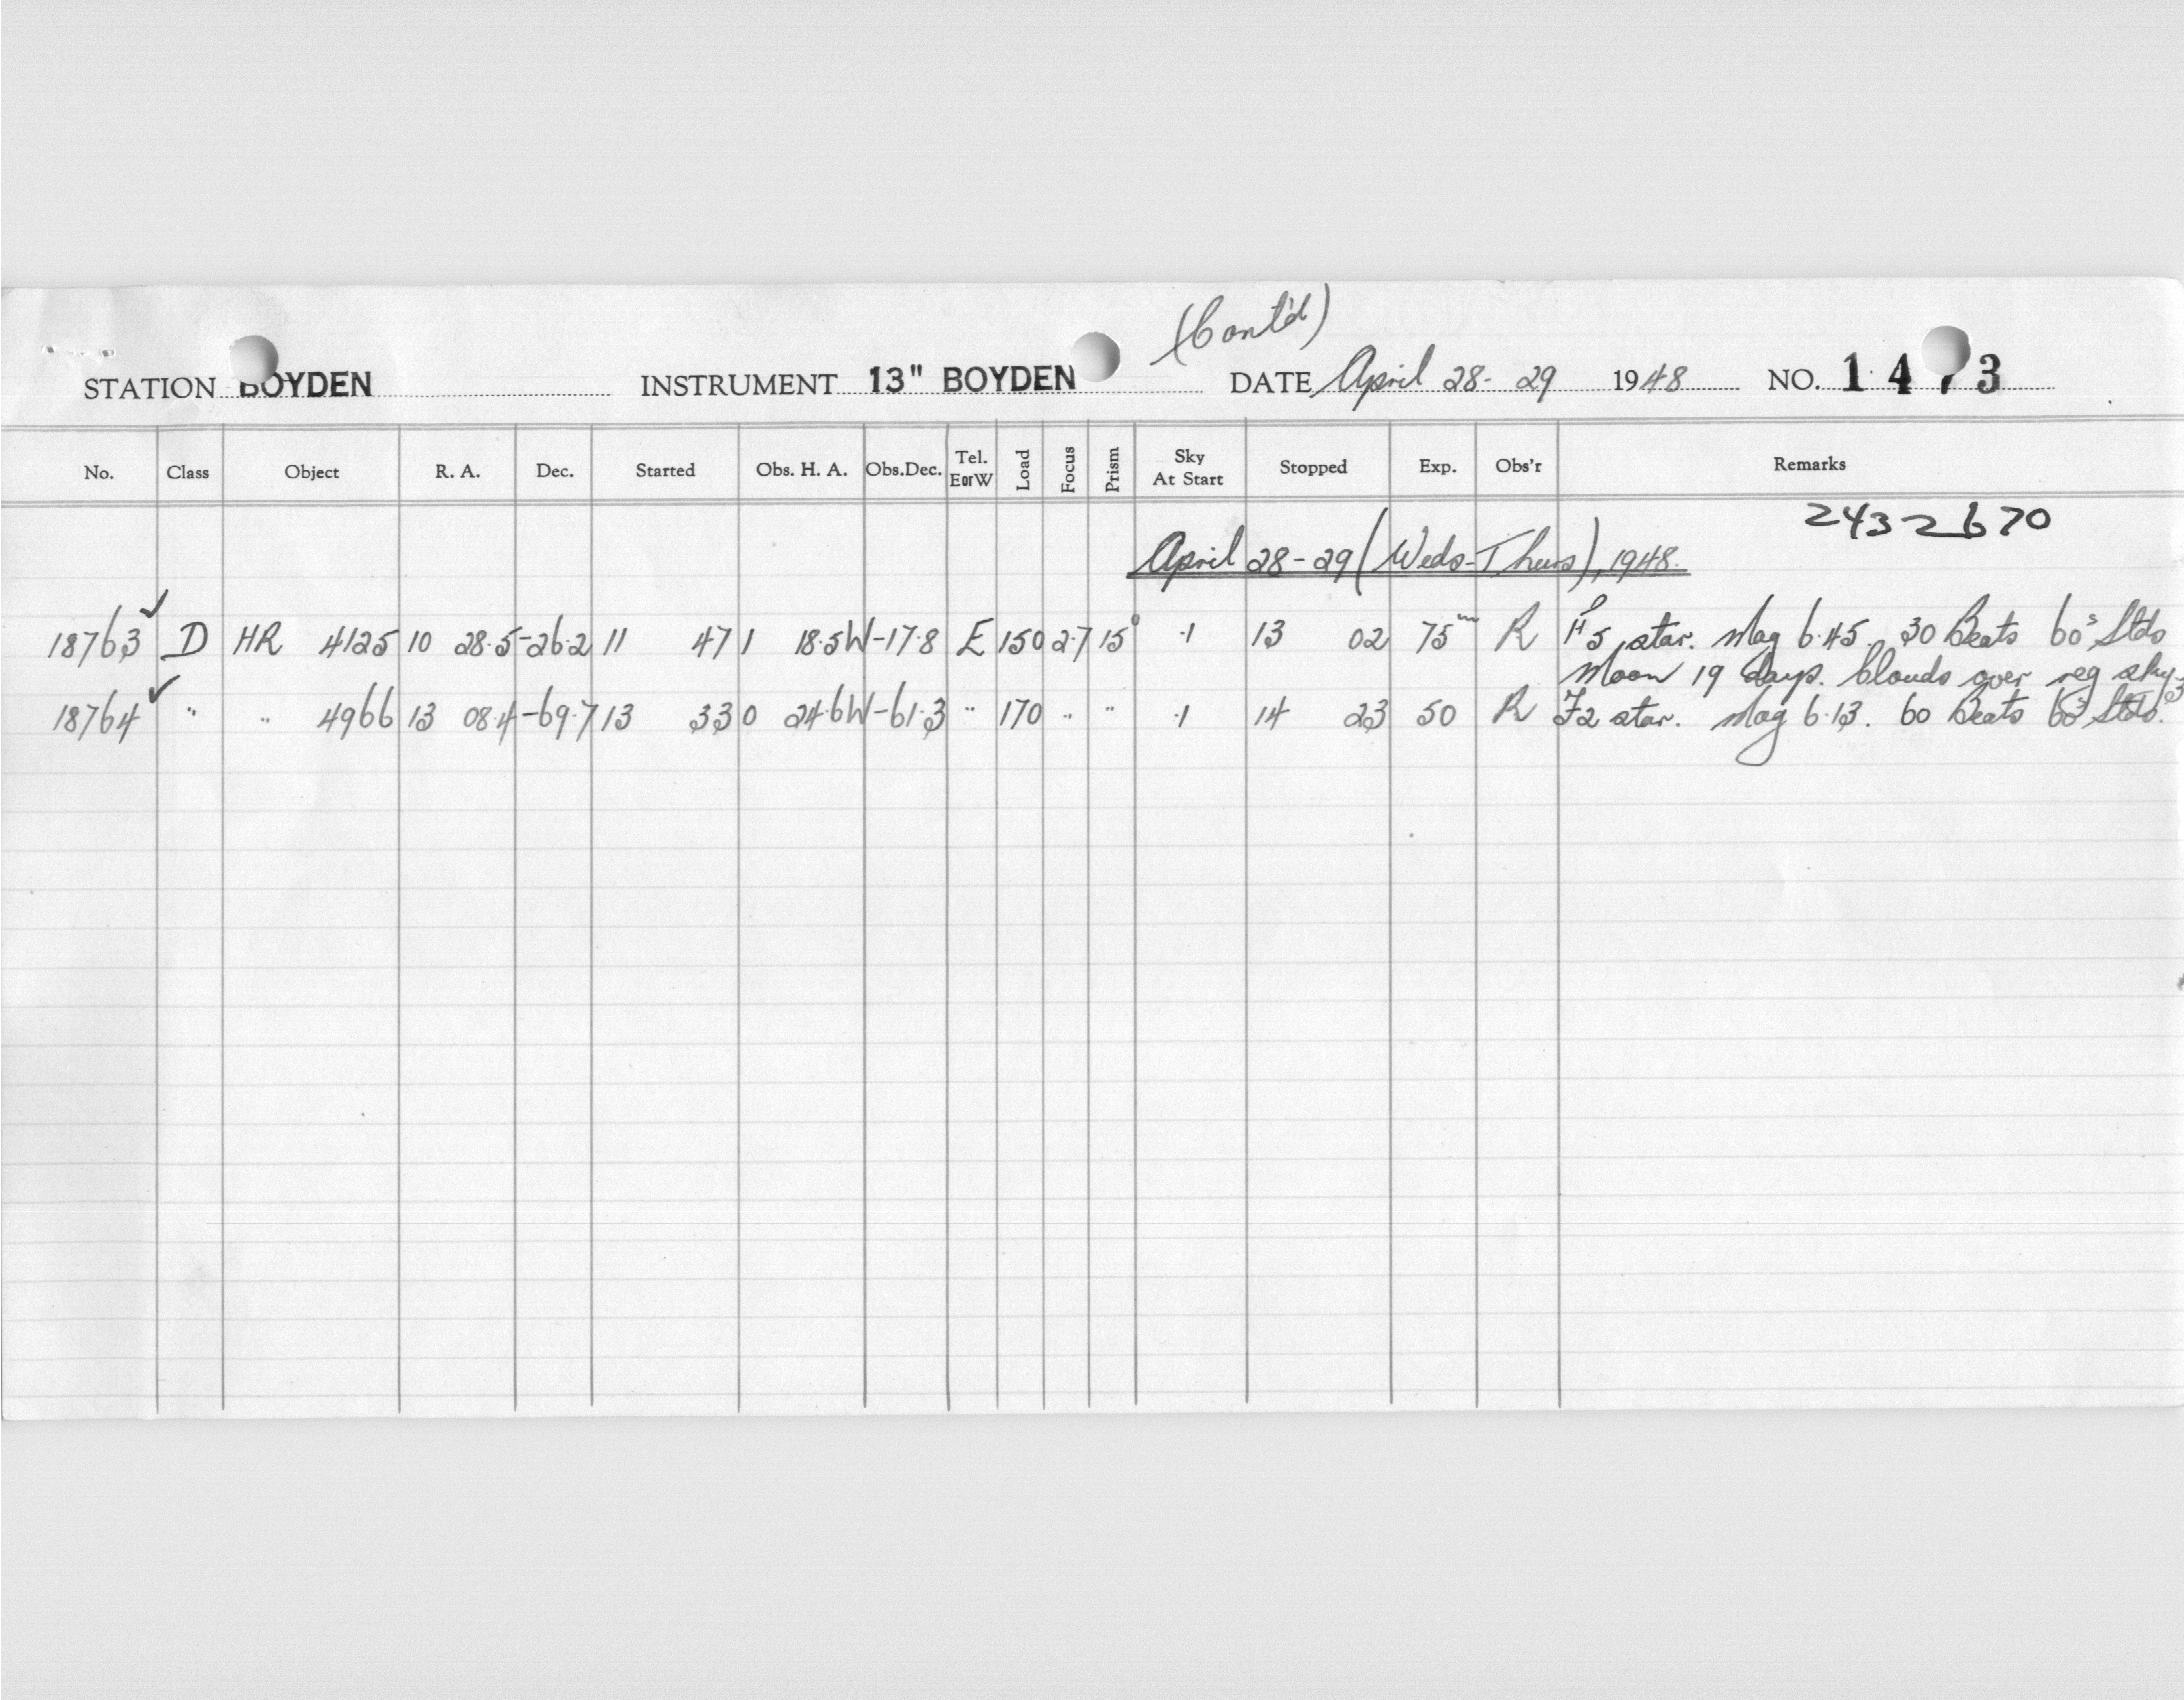 (Cont'd)
STATION BOYDEN INSTRUMENT 13" BOYDEN DATE April 28-29 1948 NO. 14 3
No. Class Object R. A. Dec. Started Obs. H. A. Obs.Dec. Tel. EorW Load Focus Prism Sky At Start Stopped Exp. Obs'r Remarks
2432670
April 28-29 (Weds-Thurs), 1948.
18763 ✓ D HR 4125 10 28.5 -26.2 11 47 1 18.5W -17.8 E 150 2.7 15° .1 13 02 75m R star. Mag 6.45. 30 Beats 60s Stds
Moon 19 days. Clouds over reg sky.
18764 ✓ " " 4966 13 08.4 -69.7 13 33 0 24.6W -61.3 " 170 " " .1 14 23 50 R F2 star. Mag 6.13. 60 Beats 60s Stds.